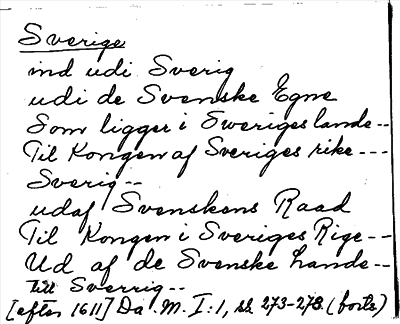 Sverige
ind udi Sverig
udi de Svenske Egne
Som ligger i Sweriges lande--
Til Kongen af Sveriges rike---
Sverig--
udaf Svenskens Raad
Til Kongen i Sveriges Rige--
Ud af de Svenske Lande--
till Sverrig--
[efter 1611] Da. M. I:1, ss. 273-278. (forts)